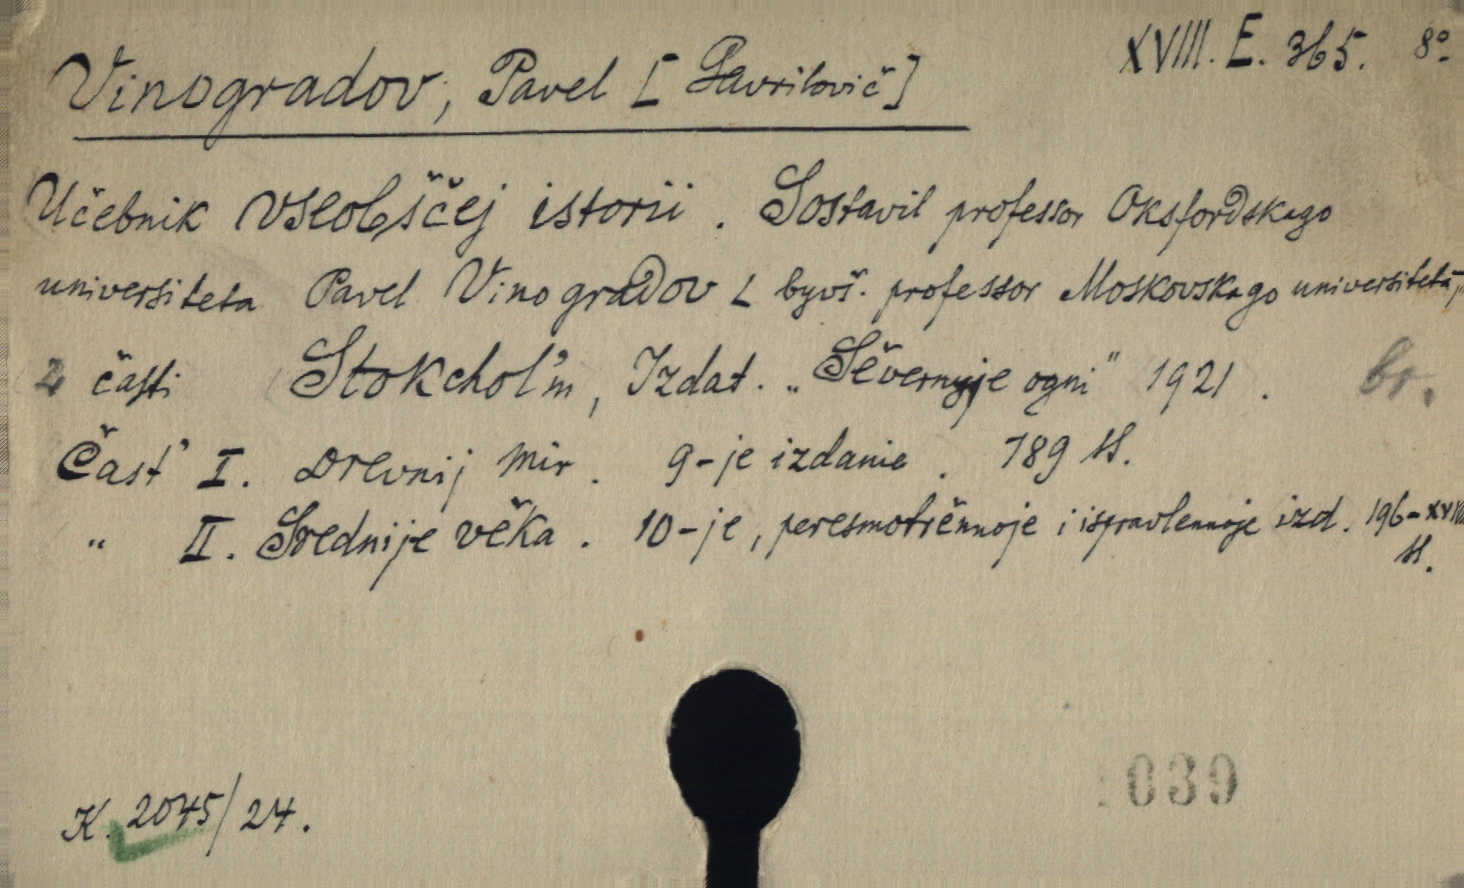 XVIII. E. 365. 8º.
Vinogradov, Pavel [Gavrilovič]
Učebnik vseobščej istorii. Sostavil professor Oksfordskago
universiteta Pavel Vinogradov [byvš. professor Moskovskago universiteta],
2 časti Stokchol'm, Izdat. „Sěvernyje ogni" 1921. br.
Čast' I. Drevnij mir. 9-je izdanie. 189 st.
„ II. Srednije věka. 10-je, peresmotrěnnoje i ispravlennoje izd. 196-XVIII
st.
039
K. 2045/24.